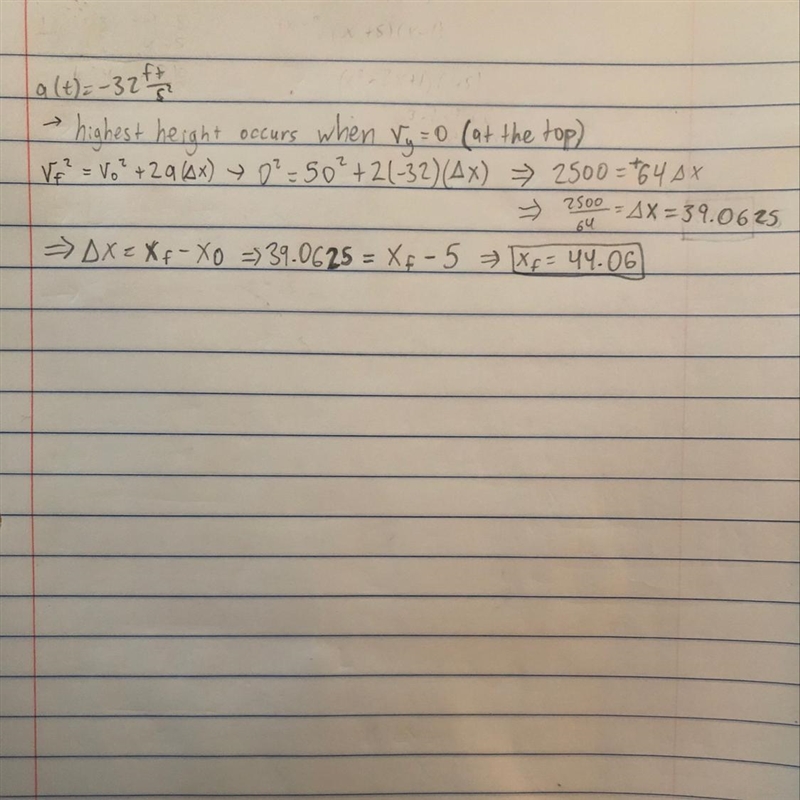 a(t) = -32 ft/s²
→ highest height occurs when Vy = 0 (at the top)
Vf² = V0² + 2a(Δx) → 0² = 50² + 2(-32)(Δx) ⇒ 2500 = +64 Δx
⇒ 2500/64 = Δx = 39.0625
⇒ Δx = xf - x0 ⇒ 39.0625 = xf - 5 ⇒ xf = 44.06